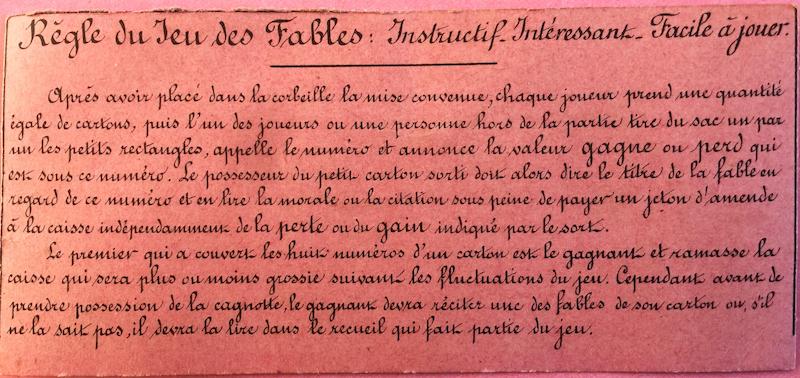 Règle du Jeu des Fables: Instructif_Intéressant_Facile à jouer.
Après avoir placé dans la corbeille la mise convenue, chaque joueur prend une quantité
égale de cartons, puis l'un des joueurs ou une personne hors de la partie tire du sac un par
un les petits rectangles, appelle le numéro et annonce la valeur gagne ou perd qui
est sous ce numéro. Le possesseur du petit carton sorti doit alors dire le titre de la fable en
regard de ce numéro et en lire la morale ou la citation sous peine de payer un jeton d'amende
à la caisse indépendamment de la perte ou du gain indiqué par le sort.
Le premier qui a couvert les huit numéros d'un carton est le gagnant et ramasse la
caisse qui sera plus ou moins grossie suivant les fluctuations du jeu. Cependant avant de
prendre possession de la cagnotte, le gagnant devra réciter une des fables de son carton ou, s'il
ne la sait pas, il devra la lire dans le recueil qui fait partie du jeu.